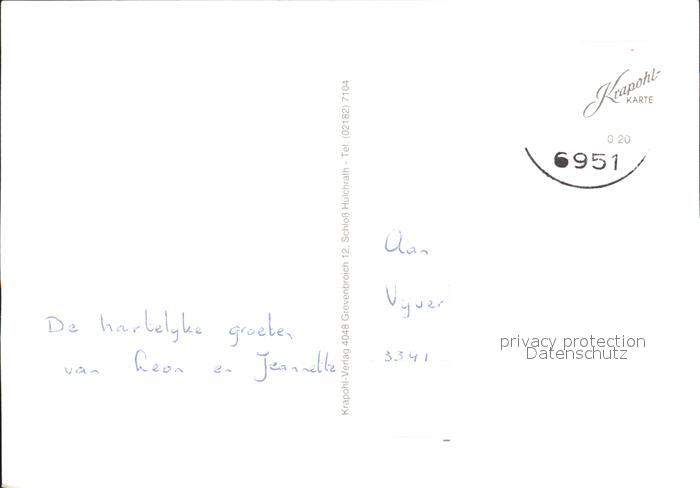 De hartelyke groeten
van Leon en Jeannette
Krapohl-Verlag 4048 Grevenbroich 12, Schloß Hülchrath - Tel. (02182) 7104
Krapohl-
KARTE
G 20
6951
Aan
Vyver
3341
privacy protection
Datenschutz